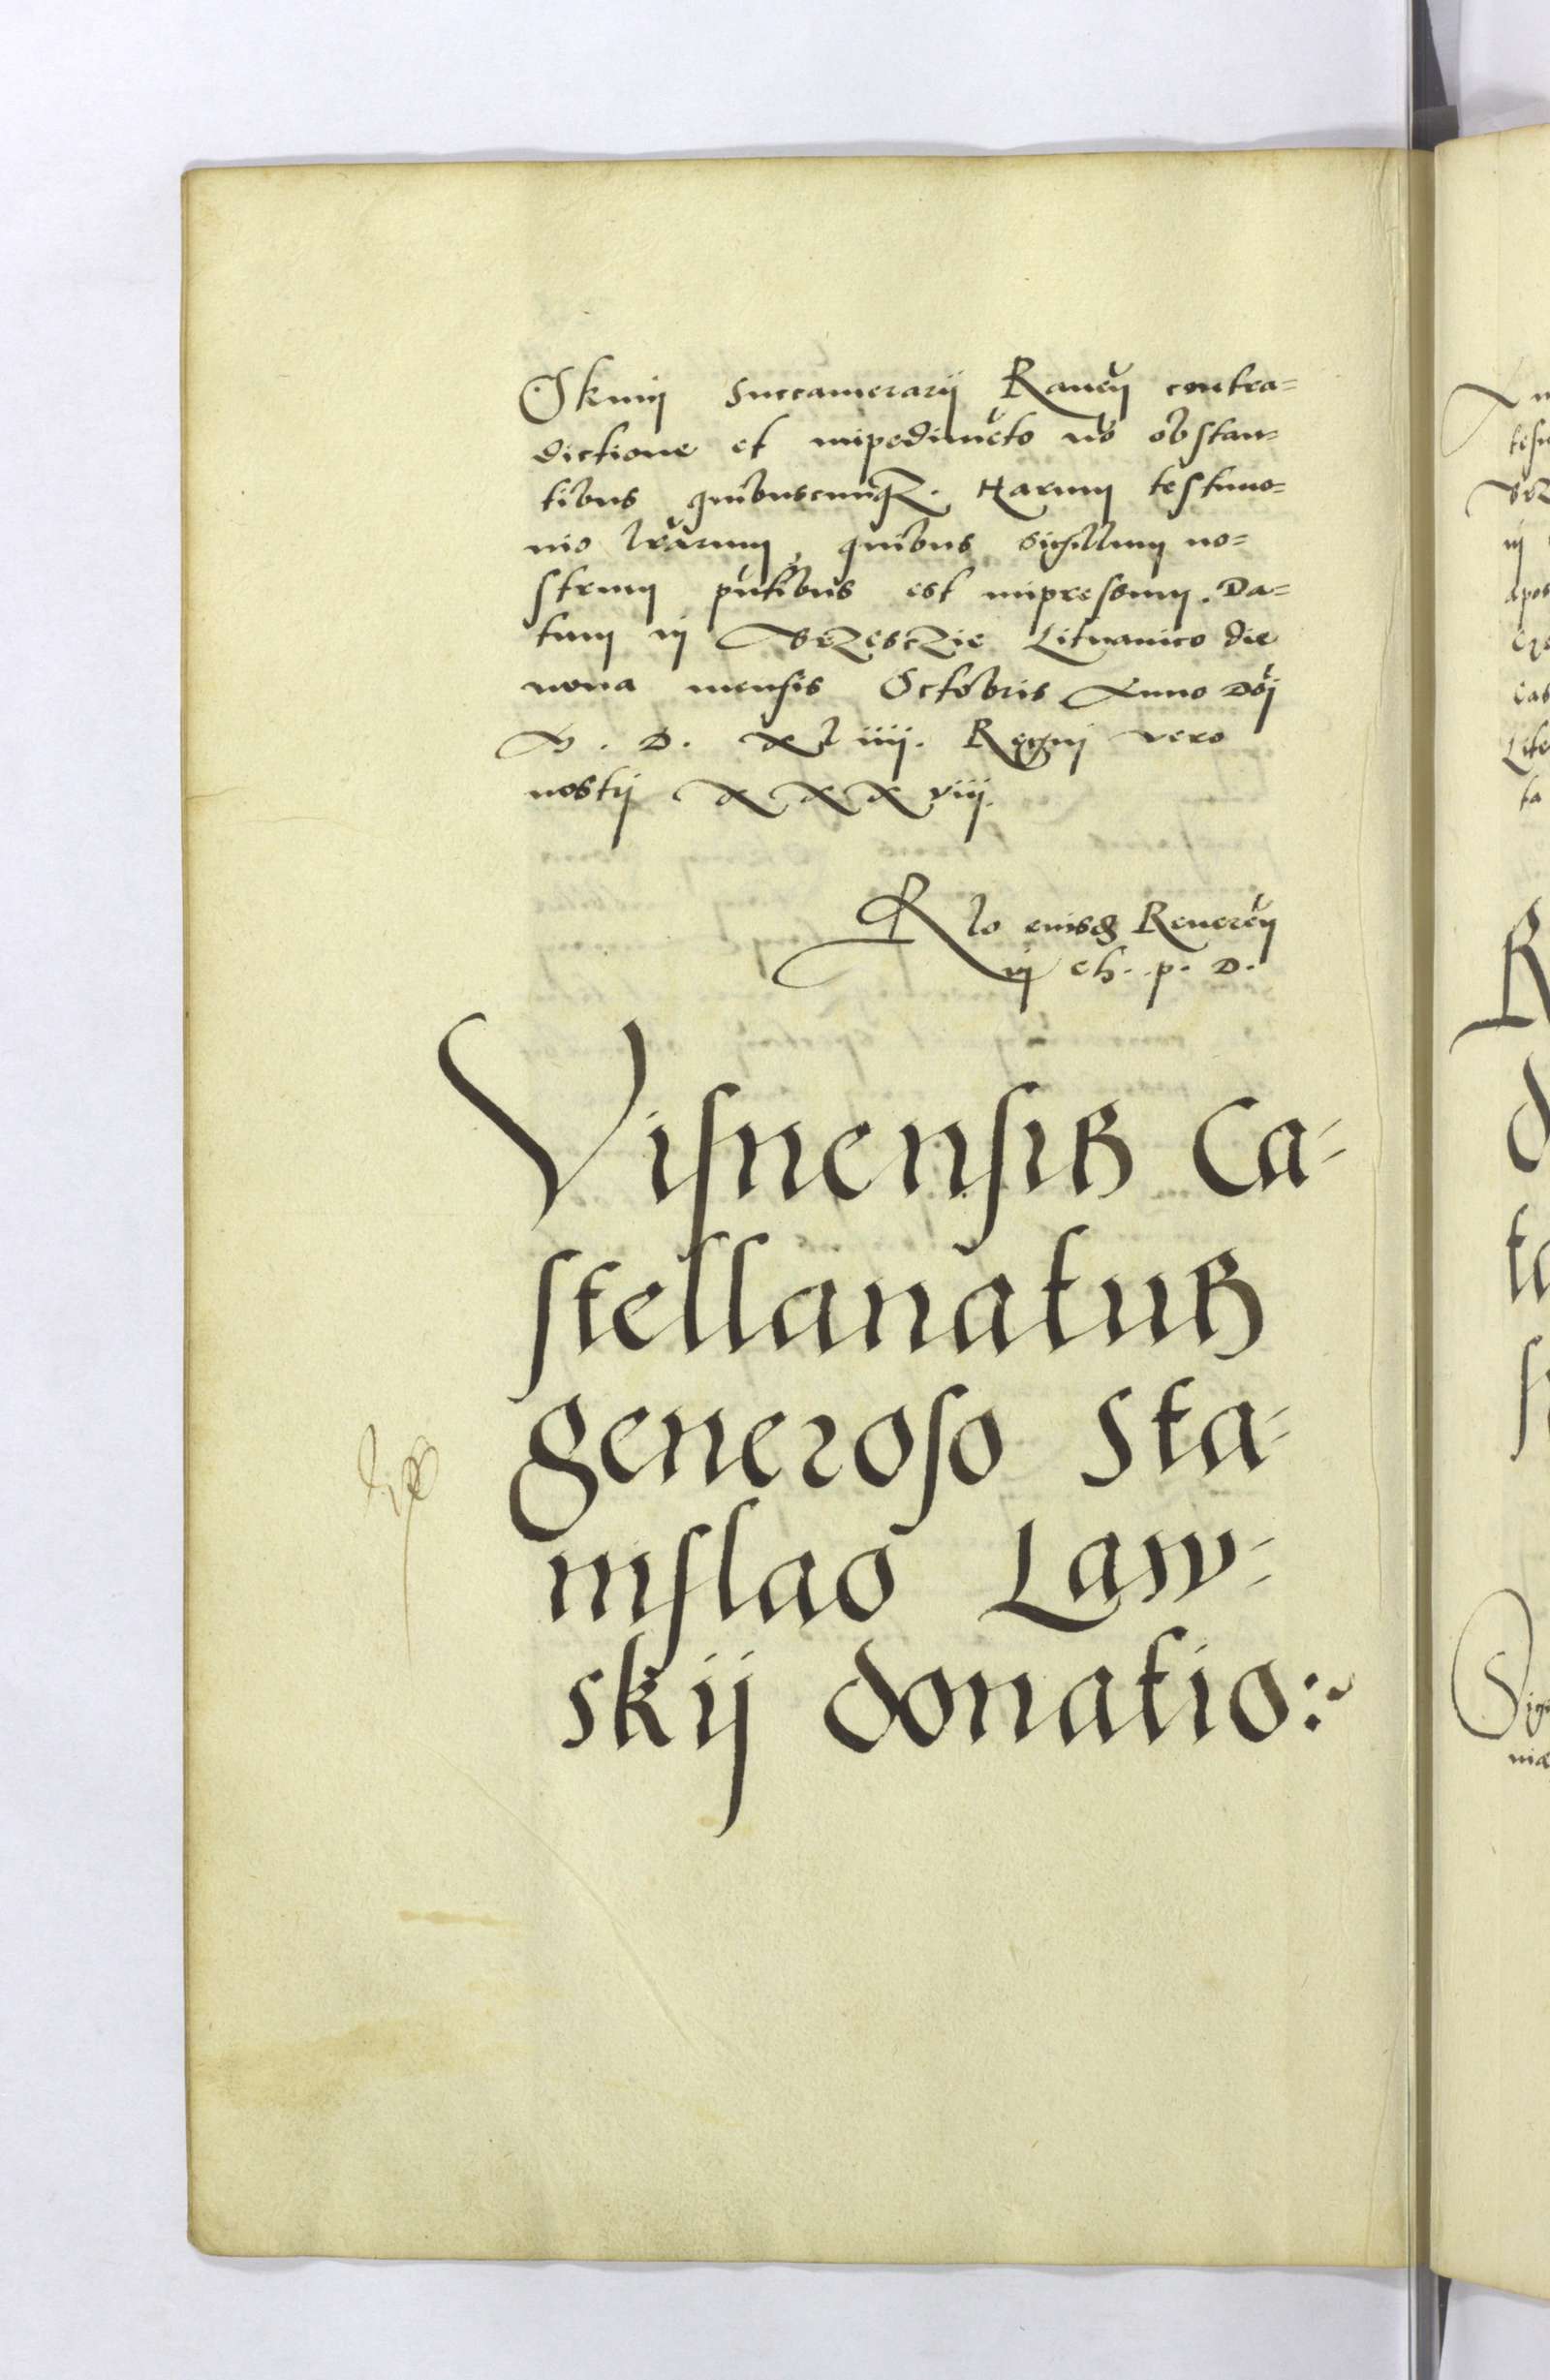 Okunÿ Succamerarij Raveñ contra=
dictione et impedimeto no obstan=
tibus quibuscunqz. Harum testimo=
nio lrarum, quibus sigillum no=
strum pntibus est impressum. Da=
tum in Brzesczie Lituanico die
nona mensis Octobris Anno Dni
M. D. xl iiij. Regni vero
nostri XXX viij.
Rlo eiusd Reveren
in ch. p. D.
Visnensis Ca=
stellanatus
generoso Sta=
nislao Law=
skij donatio:~